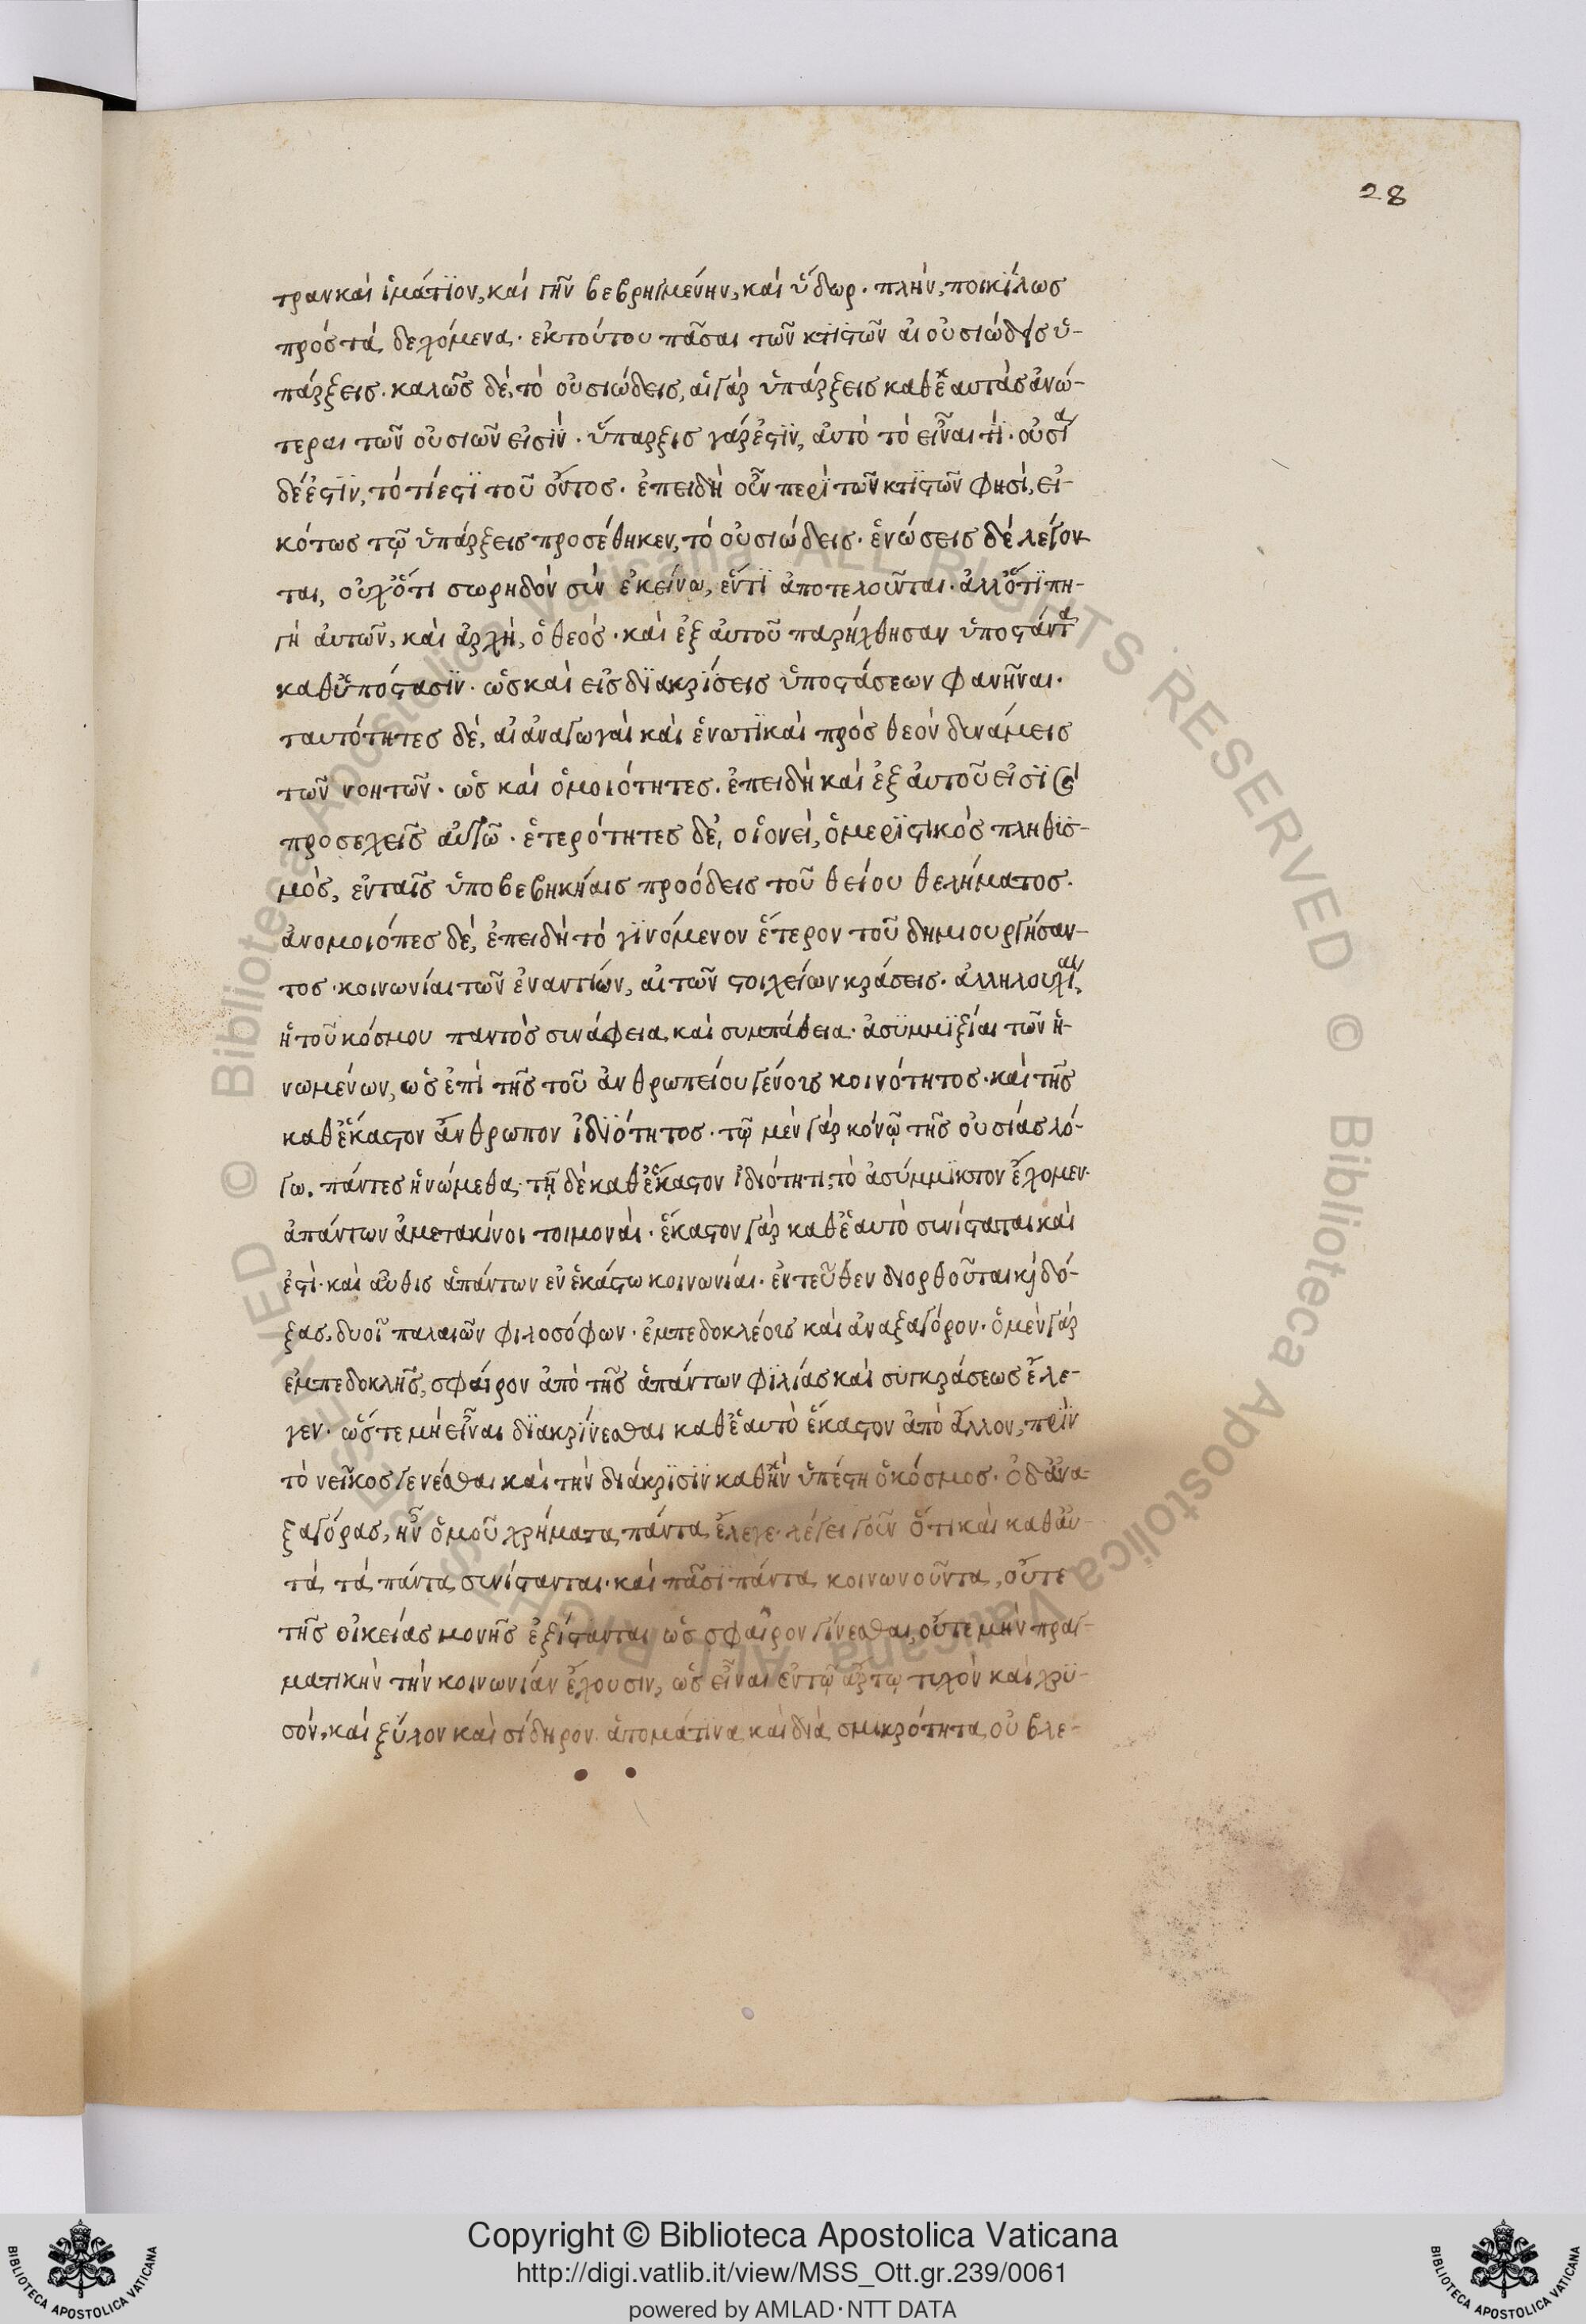 28
τραν καὶ ἱμάτϊον, καὶ γῆν βεβρηγμένην, καὶ ὕδωρ. πλὴν, ποικίλως
πρὸς τὰ δεχόμενα. ἐκ τούτου πᾶσαι τῶν κτϊστῶν αἱ οὐσιώδεις ὑ-
πάρξεις. καλῶς δὲ, τὸ οὐσιώδεις, αἱ γὰρ ὑπάρξεις καθ' ἑαυτὰς ἀνώ-
τεραι τῶν οὐσιῶν εἰσϊν. ὕπαρξις γάρ ἐστϊν, αὐτὸ τὸ εἶναι τϊ. οὐσία
δέ ἐστϊν, τὸ τί ἐστϊ τοῦ ὄντος. ἐπειδὴ οὖν περὶ τῶν κτϊστῶν φησὶ, εἰ-
κότως τῷ ὑπάρξεις προσέθηκεν, τὸ οὐσιώδεις. ἑνώσεις δὲ λέγον-
ται, οὐχ ὅτι σωρηδὸν σὺν ἐκείνω, ἕν τϊ ἀποτελοῦνται. ἀλλ' ὅτϊ πη-
γὴ αὐτῶν, καὶ ἀρχὴ, ὁ θεός. καὶ ἐξ αὐτοῦ παρήχθησαν ὑποστάντα
καθ' ὑπόστασϊν. ὡς καὶ εἰς δϊακρϊσεις ὑποστάσεων φανῆναι.
ταυτότητες δὲ, αἱ ἀναγωγαὶ καὶ ἑνωτϊκαὶ πρὸς θεὸν δυνάμεις
τῶν νοητῶν. ὡς καὶ ὁμοιότητες. ἐπειδὴ καὶ ἐξ αὐτοῦ εἰσϊ καὶ
προσεχεῖς αὐτῶ. ἑτερότητες δὲ, οἱονεὶ, ὁ μερϊστικὸς πληθϊσ-
μὸς, ἐν ταῖς ὑποβεβηκήαις προόδεις τοῦ θείου θελήματος.
ἀνομοιότητες δὲ, ἐπειδὴ τὸ γϊνόμενον ἕτερον τοῦ δημιουργήσαν-
τος. κοινωνίαι τῶν ἐναντίων, αἱ τῶν στοιχείων κράσεις. ἀλληλουχίαι,
ἡ τοῦ κόσμου παντὸς συνάφεια καὶ συμπάθεια. ἀσϋμμϊξίαι τῶν ἡ-
νωμένων, ὡς ἐπὶ τῆς τοῦ ἀνθρωπείου γένους κοινότητος. καὶ τῆς
καθ' ἕκαστον ἄνθρωπον ἰδϊότητος. τῷ μὲν γὰρ κόνῷ τῆς οὐσίας λό-
γω. πάντες ἡνώμεθα. τῇ δὲ καθ' ἕκαστον ἰδιότητι, τὸ ἀσύμμϊκτον ἔχομεν.
ἁπάντων ἀμετακίνοι τοι μοναὶ. ἕκαστον γὰρ καθ' ἑαυτὸ συνίσταται καὶ
ἐστὶ. καὶ αὖθις ἁπάντων ἐν ἑκάστω κοινωνίαι. ἐντεῦθεν διορθοῦται κὶ δό-
ξας, δυοῖ παλαιῶν φιλοσόφων. ἐμπεδοκλέους καὶ ἀναξαγόρου. ὁ μὲν γὰρ
ἐμπεδοκλῆς, σφαῖρον ἀπὸ τῆς ἁπάντων φϊλίας καὶ συγκράσεως ἔλε-
γεν. ὥστε μὴ εἶναι δϊακρϊνεσθαι καθ' ἑαυτὸ ἕκαστον ἀπὸ ἄλλου, πρὶν
τὸ νεῖκος γενέσθαι καὶ τὴν διάκρϊσϊν καθ' ἣν ὑπέστη ὁ κόσμος. ὁ δ' ἀνα-
ξαγόρας, ἦν ὁμοῦ χρήματα πάντα ἔλεγε. λέγει γοῦν ὅτι καὶ καθ' αὑ-
τὰ τὰ πάντα συνίστανται. καὶ πᾶσϊ πάντα κοινωνοῦντα, οὔτε
τῆς οἰκείας μονῆς ἐξίστανται ὡς σφαῖρον γίνεσθαι, οὔτε μὴν πραγ-
ματικὴν τὴν κοινωνίαν ἔχουσιν, ὡς εἶναι ἐν τῷ ἄρτω τυχὸν καὶ χρϋ-
σὸν, καὶ ξύλον καὶ σίδηρον. ἀπομάτϊνα καὶ διὰ σμικρότητα οὐ βλε-